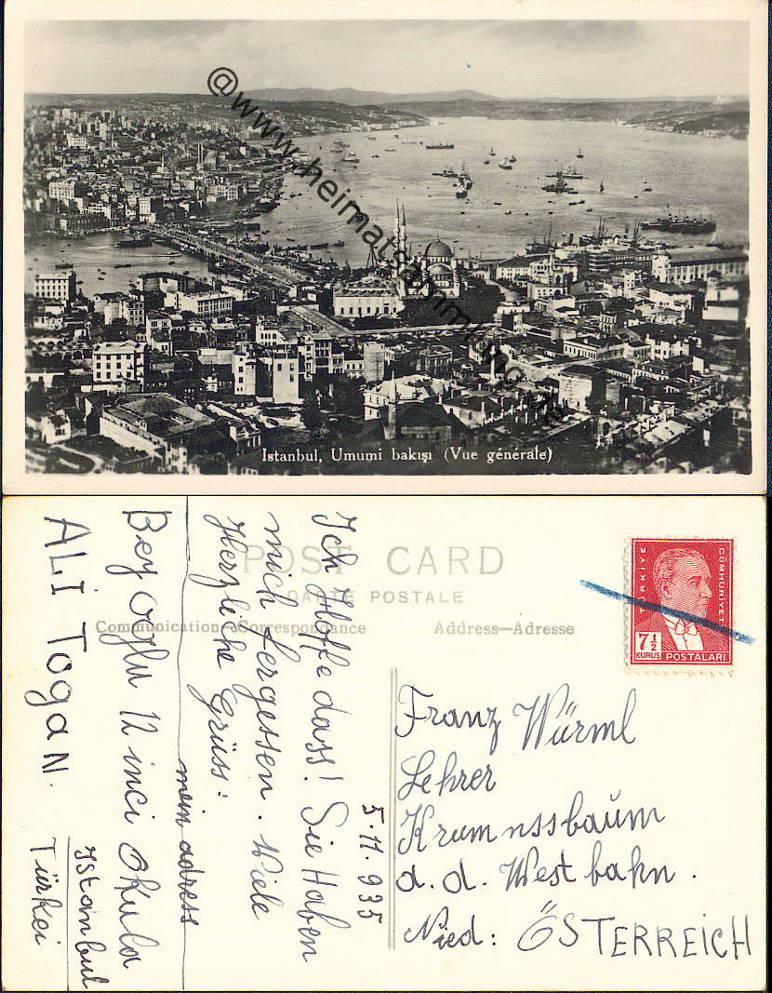 @www.heimatsammlung.de
Istanbul, Umumi bakışı (Vue générale)
POST CARD
CARTE POSTALE
Communication—Correspondance
Address—Adresse
TÜRKİYE CÜMHURİYETİ
7½
KURUŞ
POSTALARI
5.11.935
Ich Hoffe dass! Sie Haben
mich fergessen. Viele
Herzliche Grüss:
mein adress
Bey Oğlu 12 inci Okula
ALİ TOGAN.
Istanbul
Türkei
Franz Würml
Lehrer
Krumnssbaum
a.d. Westbahn.
Nied: ÖSTERREICH